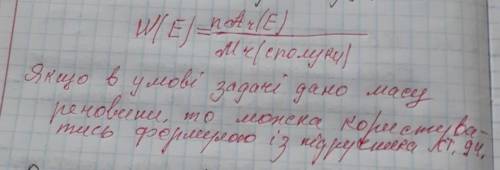 W(E) = nAr(E)
Mr(сполуки)
Якщо в умові задачі дано масу
речовини, то можна користува-
тись формулою із підручника ст. 94.